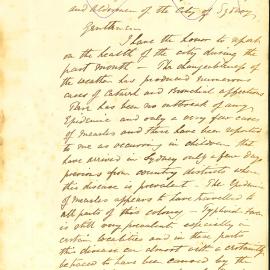 and Aldermen of the City of Sydney
Gentlemen
I have the honor to report
on the health of the city during the
past month - The changeableness of
the weather has produced numerous
cases of Catarrh and Bronchial affections
There has been no outbreak of any
Epidemic and only a very few cases
of measles and these have been reported
to me as occurring in children that
have arrived in Sydney only a few days
previous from country districts where
this disease is prevalent - The Epidemic
of measles appears to have travelled to
all parts of this colony - Typhoid fever
is still very prevalent especially in
certain localities and in those parts
this disease can almost with a certainty
be traced to have been caused by the